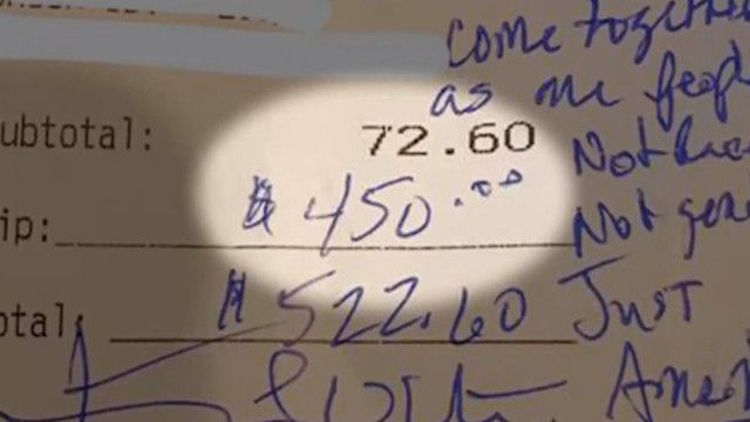 come together
as one people
ubtotal: 72.60
Not
ip: $ 450.00
Not
otal: $ 522.60 Just
Ameri